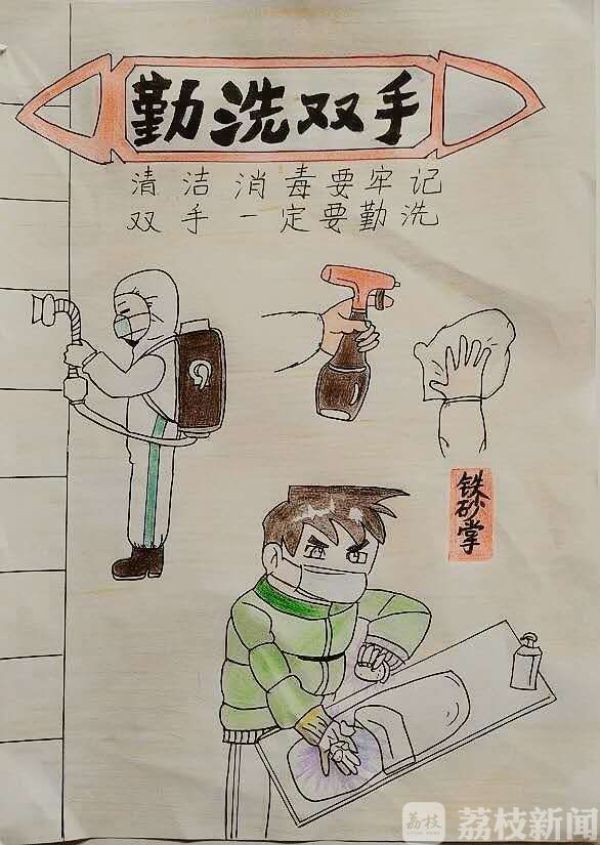 勤洗双手
清洁消毒要牢记
双手一定要勤洗
铁砂掌
荔枝
荔枝新闻